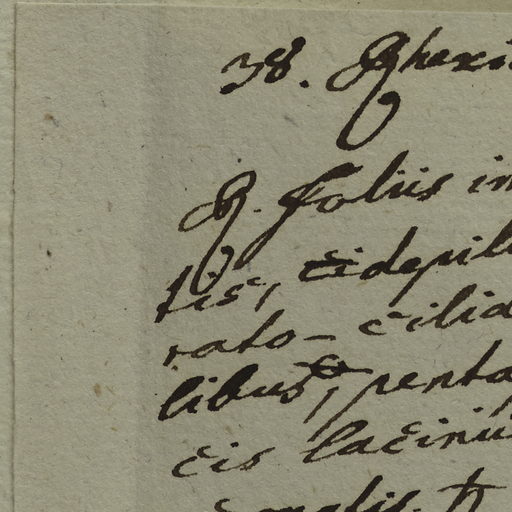 38. Rhexi
R. foliis in
tis, depil
rato-cilia
libus, penta
cis lacinii